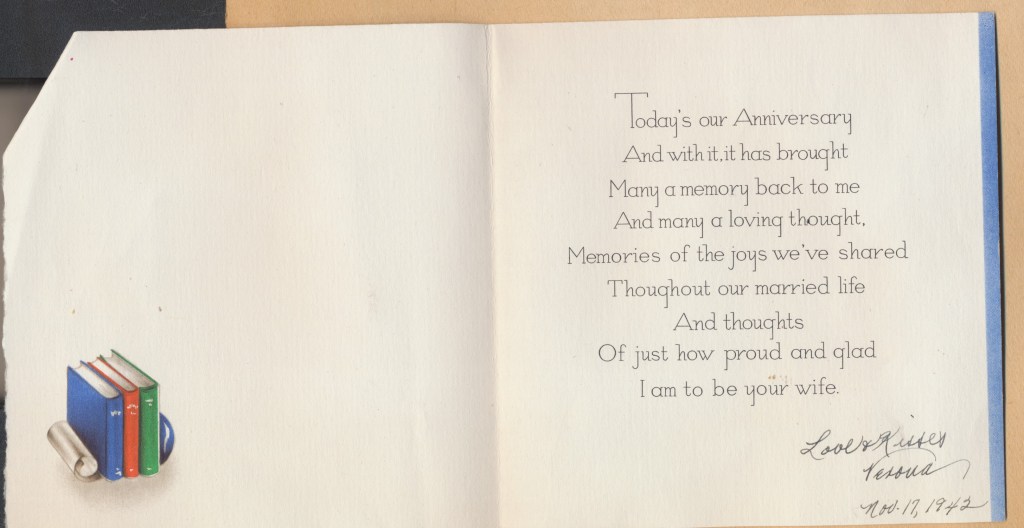 Today's our Anniversary
And with it, it has brought
Many a memory back to me
And many a loving thought,
Memories of the joys we've shared
Thoughout our married life
And thoughts
Of just how proud and glad
I am to be your wife.
Love & Kisses
Verona
Nov. 17, 1942